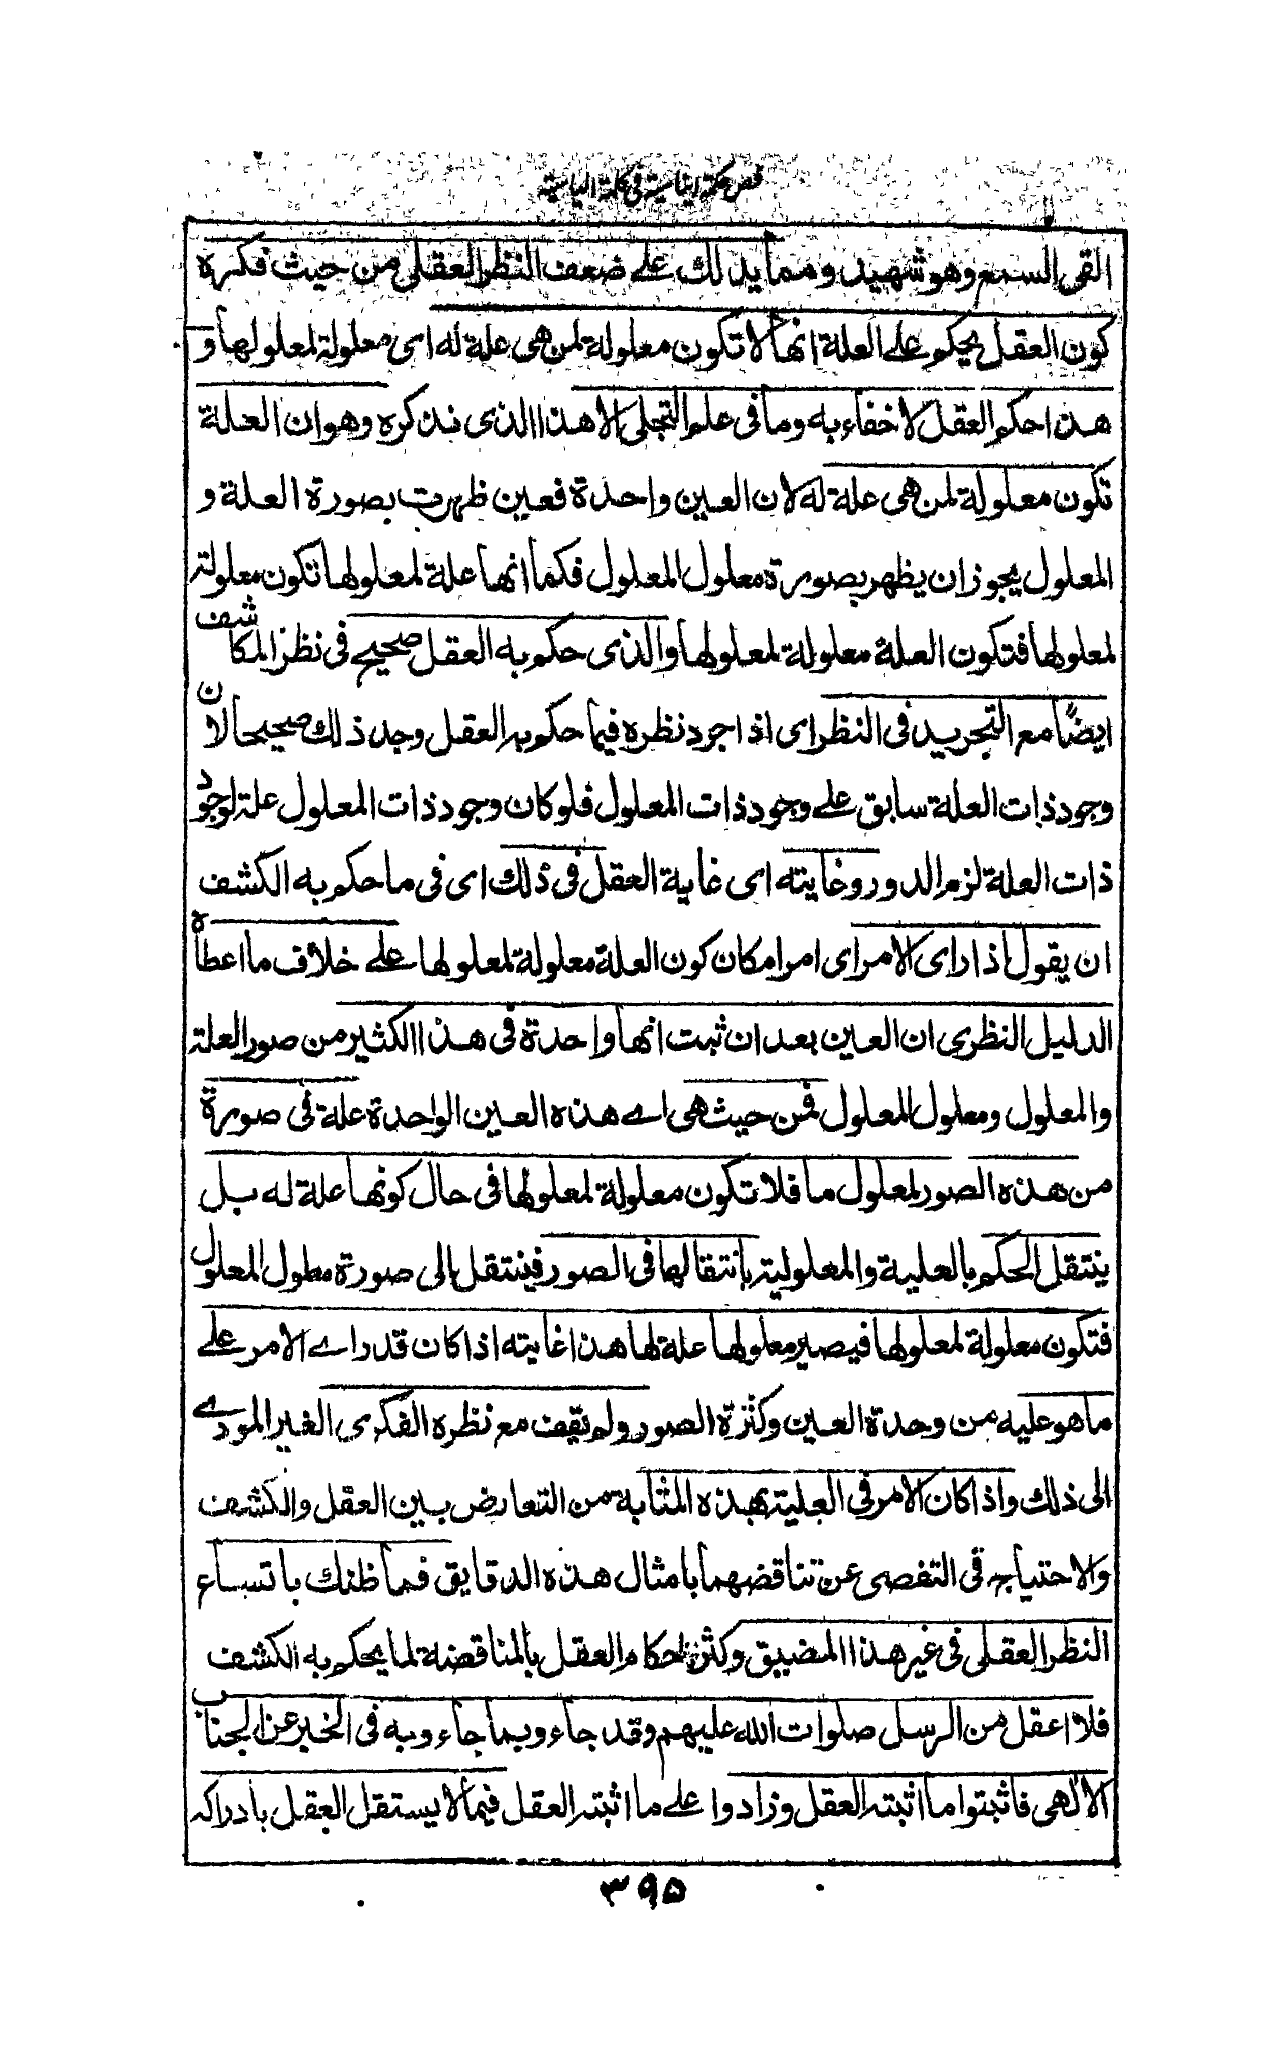 فص حكمة ايناسية فى كلمة الياسية
القى السمع وهو شهيد ومما يدلك على ضعف النظر العقلى من حيث فكره
كون العقل يحكم على العلة انها لا تكون معلولة لمن هى علة له اى معلولة لمعلولها و
هذا حكم العقل لا خفاء به وما فى علم التجلى الا هذا الذى نذكره وهو ان العلة
تكون معلولة لمن هى علة له لان العين واحدة فعين ظهرت بصورة العلة و
المعلول يجوز ان يظهر بصورة معلول المعلول فكما انها علة لمعلولها تكون معلولة
لمعلولها فتكون العلة معلولة لمعلولها والذى حكم به العقل صحيح فى نظر المكاشف
ايضًا مع التجريد فى النظر اى اذا جرد نظره فيما حكم به العقل وجد ذلك صحيحا لان
وجود ذات العلة سابق على وجود ذات المعلول فلو كان وجود ذات المعلول علة لوجود
ذات العلة لزم الدور وغايته اى غاية العقل فى ذلك اى فى ما حكم به الكشف
ان يقول اذا راى الامر اى امر امكان كون العلة معلولة لمعلولها على خلاف ما اعطاه
الدليل النظرى ان العين بعد ان ثبت انها واحدة فى هذا الكثير من صور العلة
والمعلول ومعلول المعلول فمن حيث هى اے هذه العين الواحدة علة فى صورة
من هذه الصور لمعلول ما فلا تكون معلولة لمعلولها فى حال كونها علة له بل
ينتقل الحكم بالعلية والمعلولية بانتقالها فى الصور فينتقل الى صورة معلول المعلول
فتكون معلولة لمعلولها فيصير معلولها علة لها هذا غايته اذا كان قد راے الامر على
ما هو عليه من وحدة العين وكثرة الصور ولم تقف مع نظره الفكرى الغير المودے
الى ذلك واذا كان الامر فى العلية بهذه المثابة من التعارض بين العقل والكشف
والاحتياج فى التفصى عن تناقضهما بامثال هذه الدقايق فما ظنك باتساع
النظر العقلى فى غير هذا المضيق وكثرة احكام العقل بالمناقضة لما يحكم به الكشف
فلا اعقل من الرسل صلوات الله عليهم وقد جاءو بما جاءو به فى الخبر عن الجناب
الالٰهى فاثبتوا ما اثبته العقل وزادوا على ما اثبته العقل فيما لا يستقل العقل بادراكه
۳۹۵